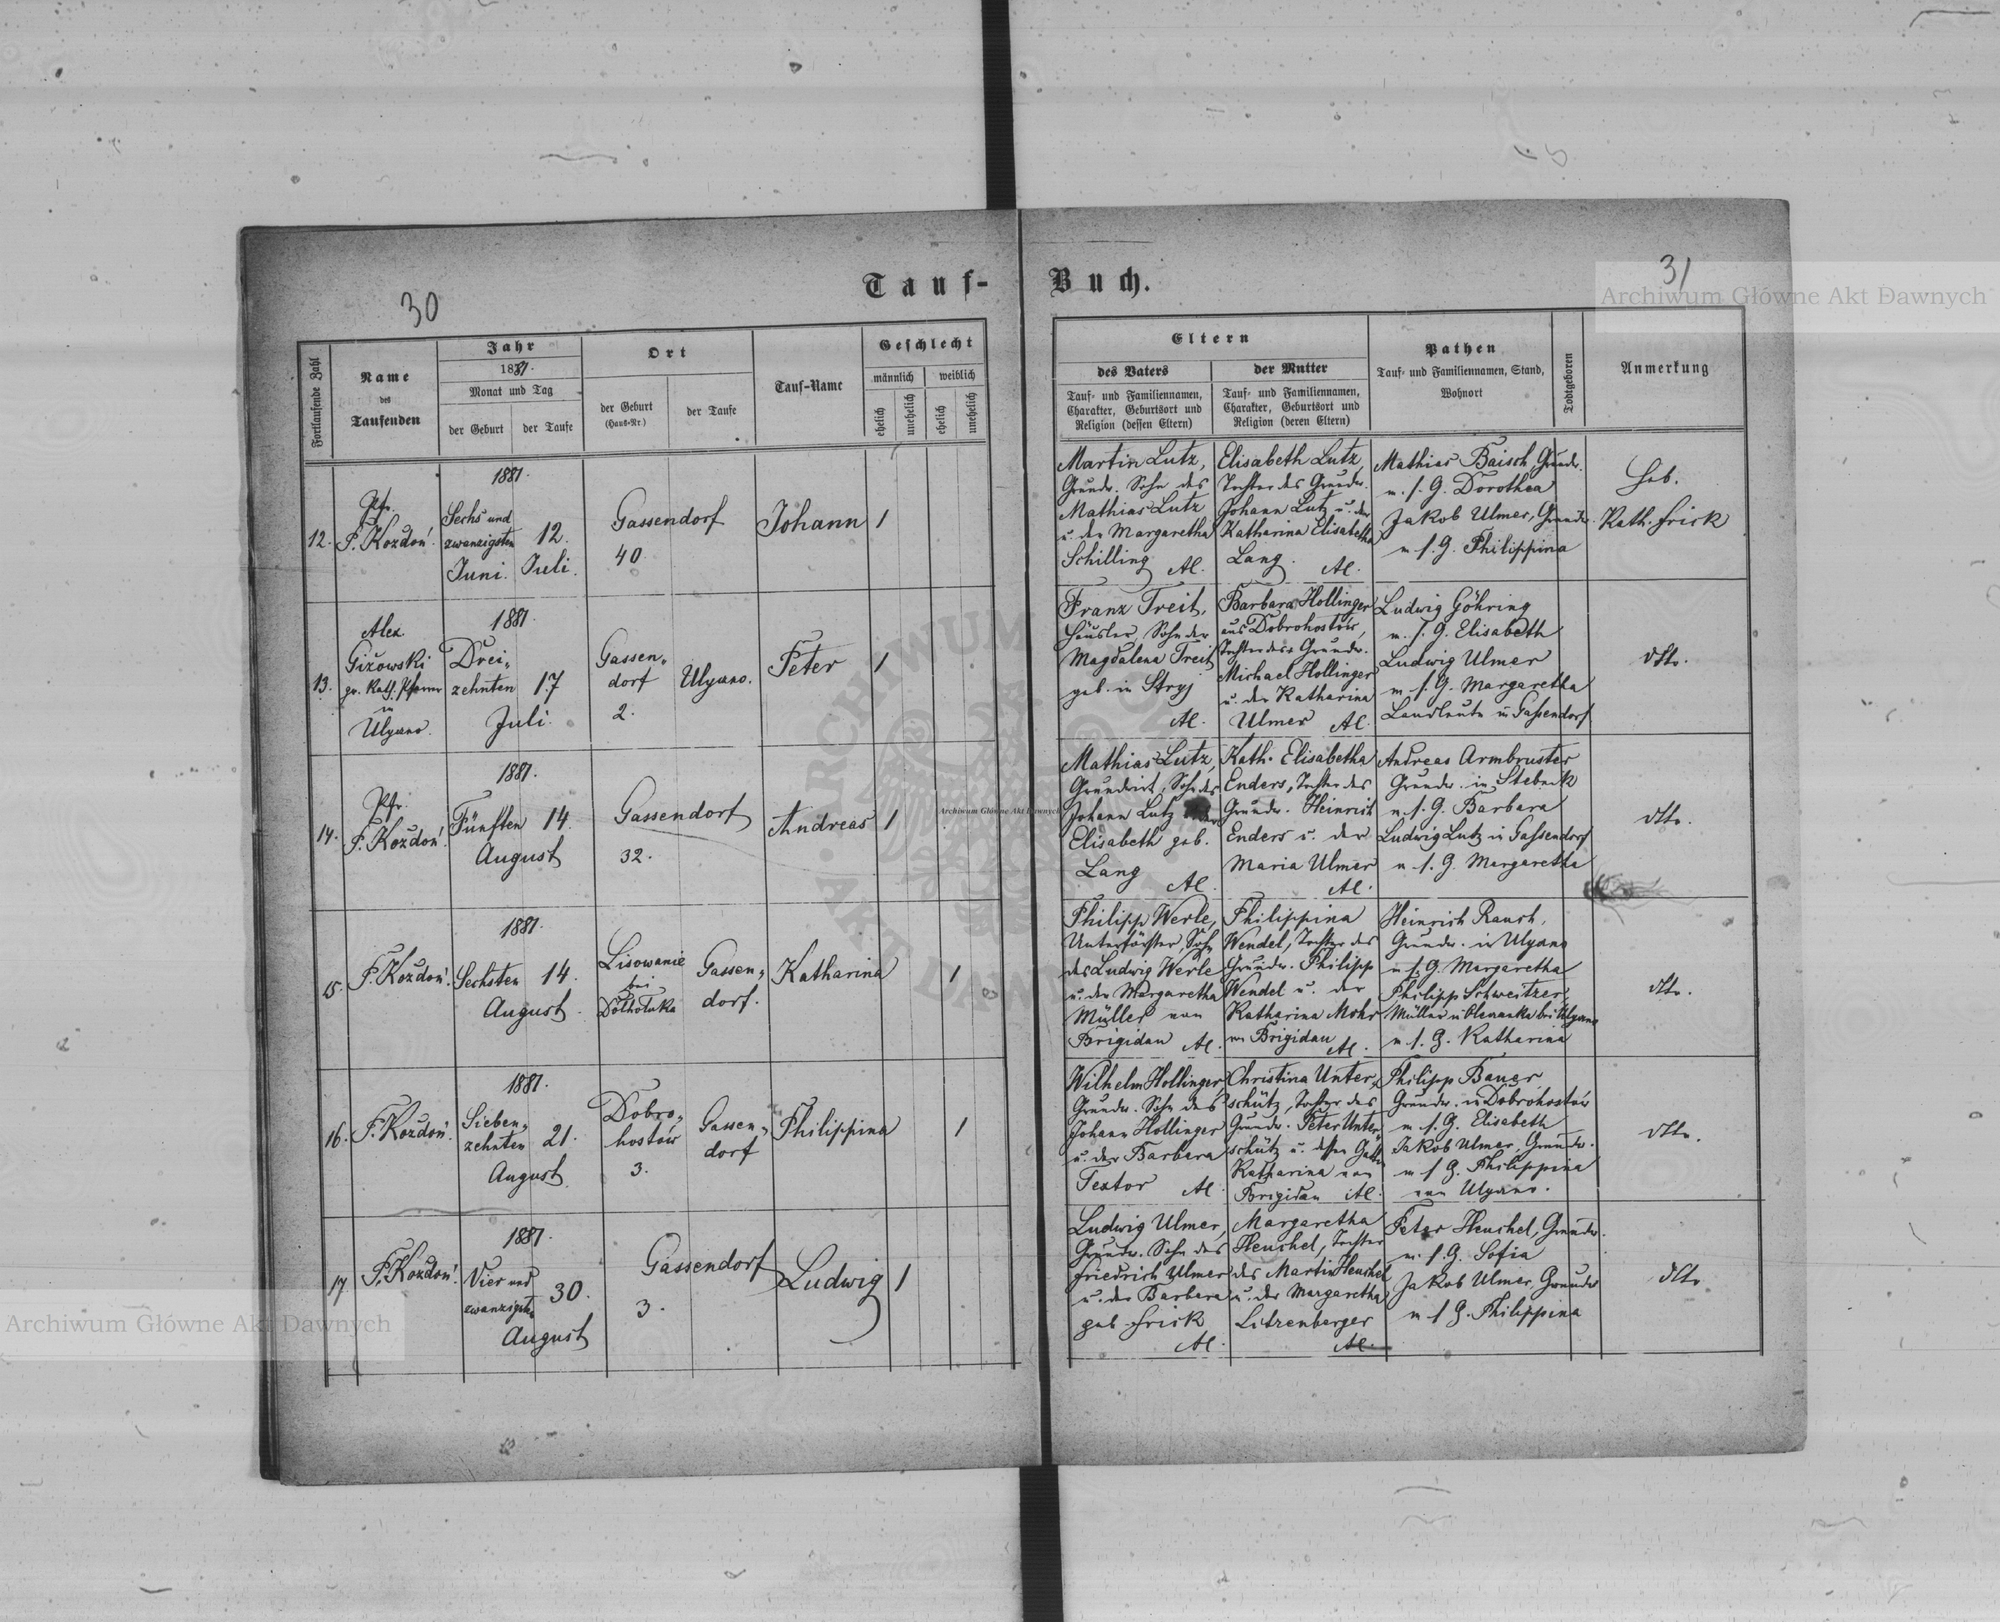 30
Tauf-
Buch.
31
Archiwum Główne Akt Dawnych
Fortlaufende Zahl
Name
des
Taufenden
Jahr
1881.
Monat und Tag
der Geburt
der Taufe
Ort
der Geburt
(Haus-Nr.)
der Taufe
Tauf-Name
Geschlecht
männlich
weiblich
ehelich
unehelich
ehelich
unehelich
Eltern
des Vaters
Tauf- und Familiennamen,
Charakter, Geburtsort und
Religion (dessen Eltern)
der Mutter
Tauf- und Familiennamen,
Charakter, Geburtsort und
Religion (deren Eltern)
Pathen
Tauf- und Familiennamen, Stand,
Wohnort
Todtgeboren
Anmerkung
12.
Pfr.
F. Kozdoń.
1881.
Sechs und
zwanzigsten
Juni.
12.
Juli.
Gassendorf
40.
Johann
1
Martin Lutz,
Grundw. Sohn des
Mathias Lutz
u. der Margaretha
Schilling
AC.
Elisabeth Lutz,
Tochter des Grundw.
Johann Lutz u. der
Katharina Elisabetha
Lang.
AC.
Mathias Baisch, Grundw.
u. s. G. Dorothea
Jakob Ulmer, Grundw.
u. s. G. Philippina
Heb.
Kath. Frick
13.
Alex.
Giżowski
gr. kath. Pfarrer
in
Ulyczno.
1881.
Drei-
zehnten
Juli.
17
Gassen-
dorf
2.
Ulyczno.
Peter
1
Franz Treit,
Häusler, Sohn der
Magdalena Treit
geb. in Stryj
AC.
Barbara Hollinger
aus Dobrohostów,
Tochter des Grundw.
Michael Hollinger
u. der Katharina
Ulmer AC.
Ludwig Göhring
u. s. G. Elisabeth
Ludwig Ulmer
u. s. G. Margaretha
Landleute in Gassendorf
dtto.
14.
Pfr.
F. Kozdoń.
1881.
Fünften
August
14.
Gassendorf
32.
Andreas
1
Archiwum Główne Akt Dawnych
Mathias Lutz,
Grundwirt, Sohn des
Johann Lutz
Elisabeth geb.
Lang
AC.
Kath. Elisabetha
Enders, Tochter des
Grundw. Heinrich
Enders u. der
Maria Ulmer
AC.
Andreas Armbruster
Grundw. in
u. s. G. Barbara
Ludwig Lutz in Gassendorf
u. s. G. Margaretha
dtto.
15.
F. Kozdoń.
1881.
Sechsten
August.
14.
Lisowanie
bei
Dolholuka
Gassen-
dorf.
Katharina
1
Philipp Werle,
Unterförster, Sohn
des Ludwig Werle
u. der Margaretha
Müller von
Brigidau AC.
Philippina
Wendel, Tochter des
Grundw. Philipp
Wendel u. der
Katharina Mohr
von Brigidau
AC.
Heinrich Rauch,
Grundw. in Ulyczno
u. s. G. Margaretha
Philipp Schweitzer,
Müller in bei Ulyczno
u. s. G. Katharina
dtto.
16.
F. Kozdoń.
1881.
Sieben-
zehnten
August.
21.
Dobro-
hostów
3.
Gassen-
dorf
Philippina
1
Wilhelm Hollinger,
Grundw. Sohn des
Johann Hollinger
u. der Barbara
Textor AC.
Christina Unter-
schütz, Tochter des
Grundw. Peter Unter-
schütz u. dessen Gattin
Katharina von
Brigidau AC.
Philipp Bauer,
Grundw. in Dobrohostów
u. s. G. Elisabeth
Jakob Ulmer, Grundw.
u. s. G. Philippina
von Ulyczno.
dtto.
17.
F. Kozdoń.
1881.
Vier und
zwanzigsten
August
30.
Gassendorf
3.
Ludwig
1
Ludwig Ulmer,
Grundw. Sohn des
Friedrich Ulmer
u. der Barbara
geb. Frick
AC.
Margaretha
Heuchel, Tochter
des Martin Heuchel
u. der Margaretha
Litzenberger
AC.
Peter Heuchel, Grundw.
u. s. G. Sofia
Jakob Ulmer, Grundw
u. s. G. Philippina
dtto.
Archiwum Główne Akt Dawnych